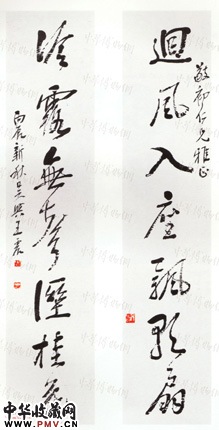 敬初仁兄雅正
迴風入座飄歌扇
冷露無聲溼桂花
丙辰新秋吳興王震
中华收藏网
WWW.PMV.CN